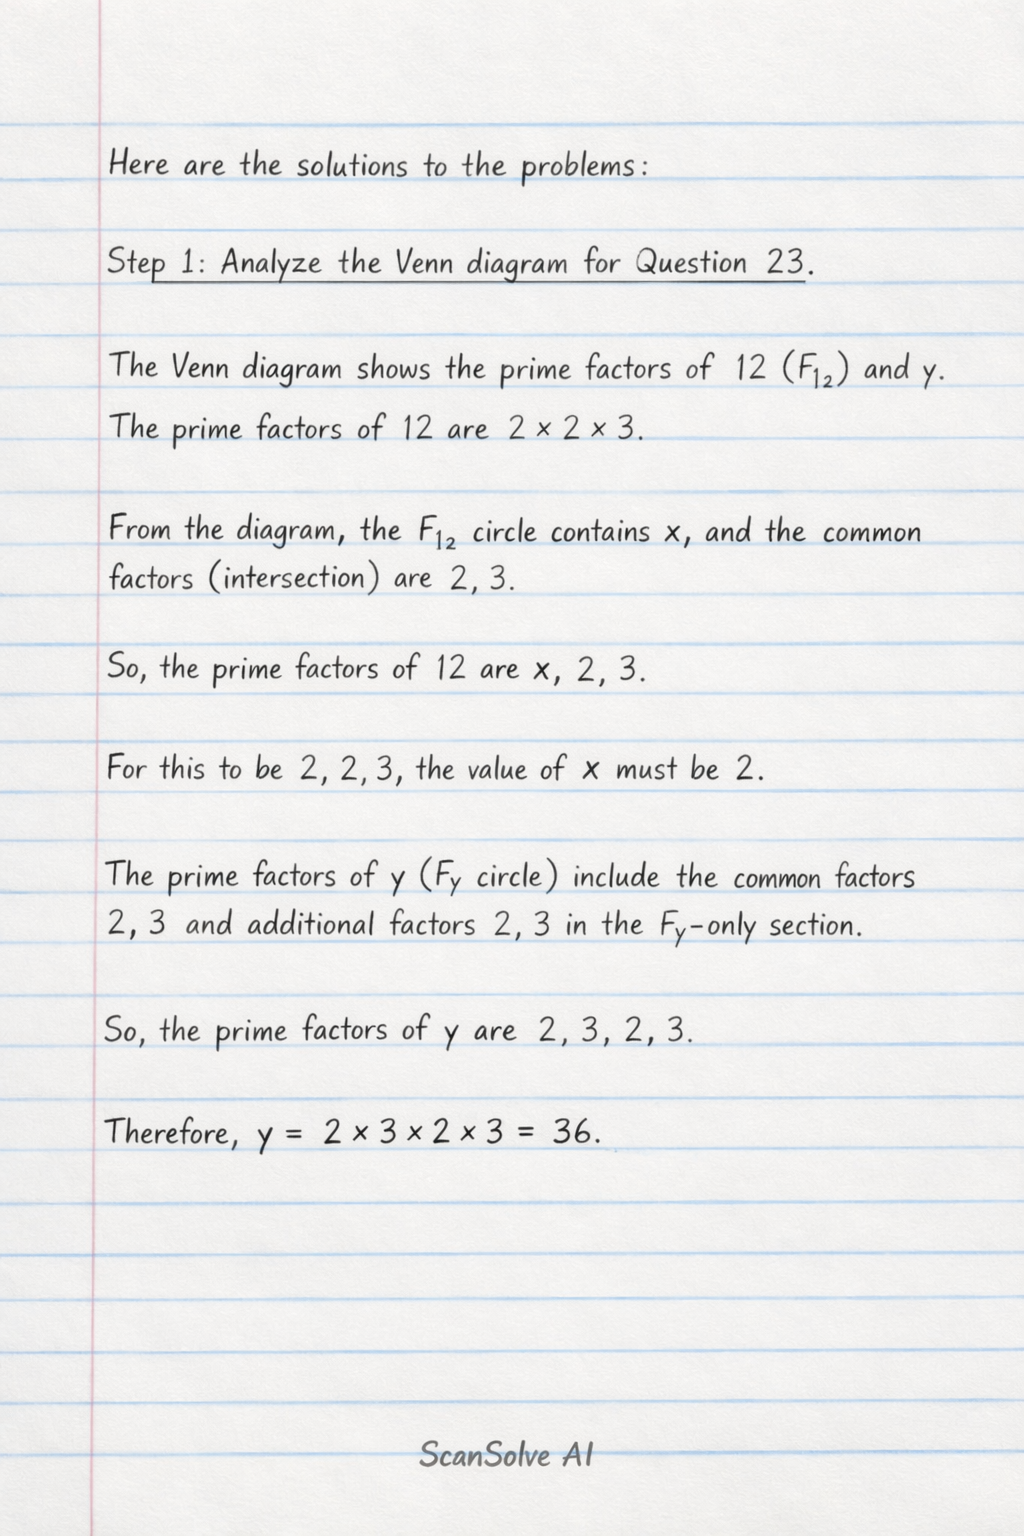 Here are the solutions to the problems:
Step 1: Analyze the Venn diagram for Question 23.
The Venn diagram shows the prime factors of 12 (F₁₂) and y.
The prime factors of 12 are 2 × 2 × 3.
From the diagram, the F₁₂ circle contains x, and the common
factors (intersection) are 2, 3.
So, the prime factors of 12 are x, 2, 3.
For this to be 2, 2, 3, the value of x must be 2.
The prime factors of y (Fy circle) include the common factors
2, 3 and additional factors 2, 3 in the Fy-only section.
So, the prime factors of y are 2, 3, 2, 3.
Therefore, y = 2 × 3 × 2 × 3 = 36.
ScanSolve AI